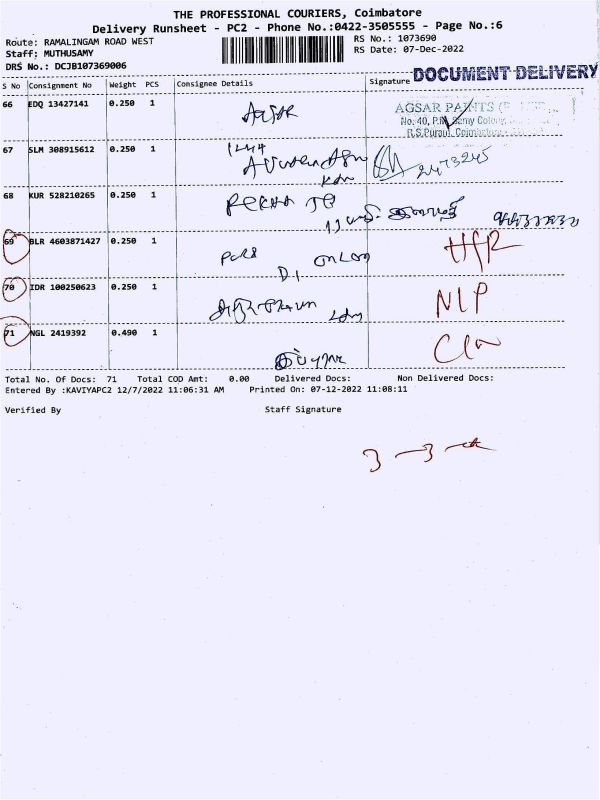 THE PROFESSIONAL COURIERS, Coimbatore
Delivery Runsheet - PC2 - Phone No.:0422-3505555 - Page No.:6
Route: RAMALINGAM ROAD WEST
RS No.: 1073690
Staff: MUTHUSAMY
RS Date: 07-Dec-2022
DRS No.: DCJB107369006
DOCUMENT DELIVERY
S No Consignment No Weight PCS Consignee Details Signature
66 EDQ 13427141 0.250 1
AGSAR PAINTS
No. 40, P.M. Samy Colony,
R.S.Puram, Coimbatore
67 SLM 308915612 0.250 1
2473245
68 KUR 528210265 0.250 1
REKHA
69 BLR 4603871427 0.250 1
70 IDR 100250623 0.250 1
NLP
71 NGL 2419392 0.490 1
Total No. Of Docs: 71 Total COD Amt: 0.00 Delivered Docs: Non Delivered Docs:
Entered By :KAVIYAPC2 12/7/2022 11:06:31 AM Printed On: 07-12-2022 11:08:11
Verified By Staff Signature